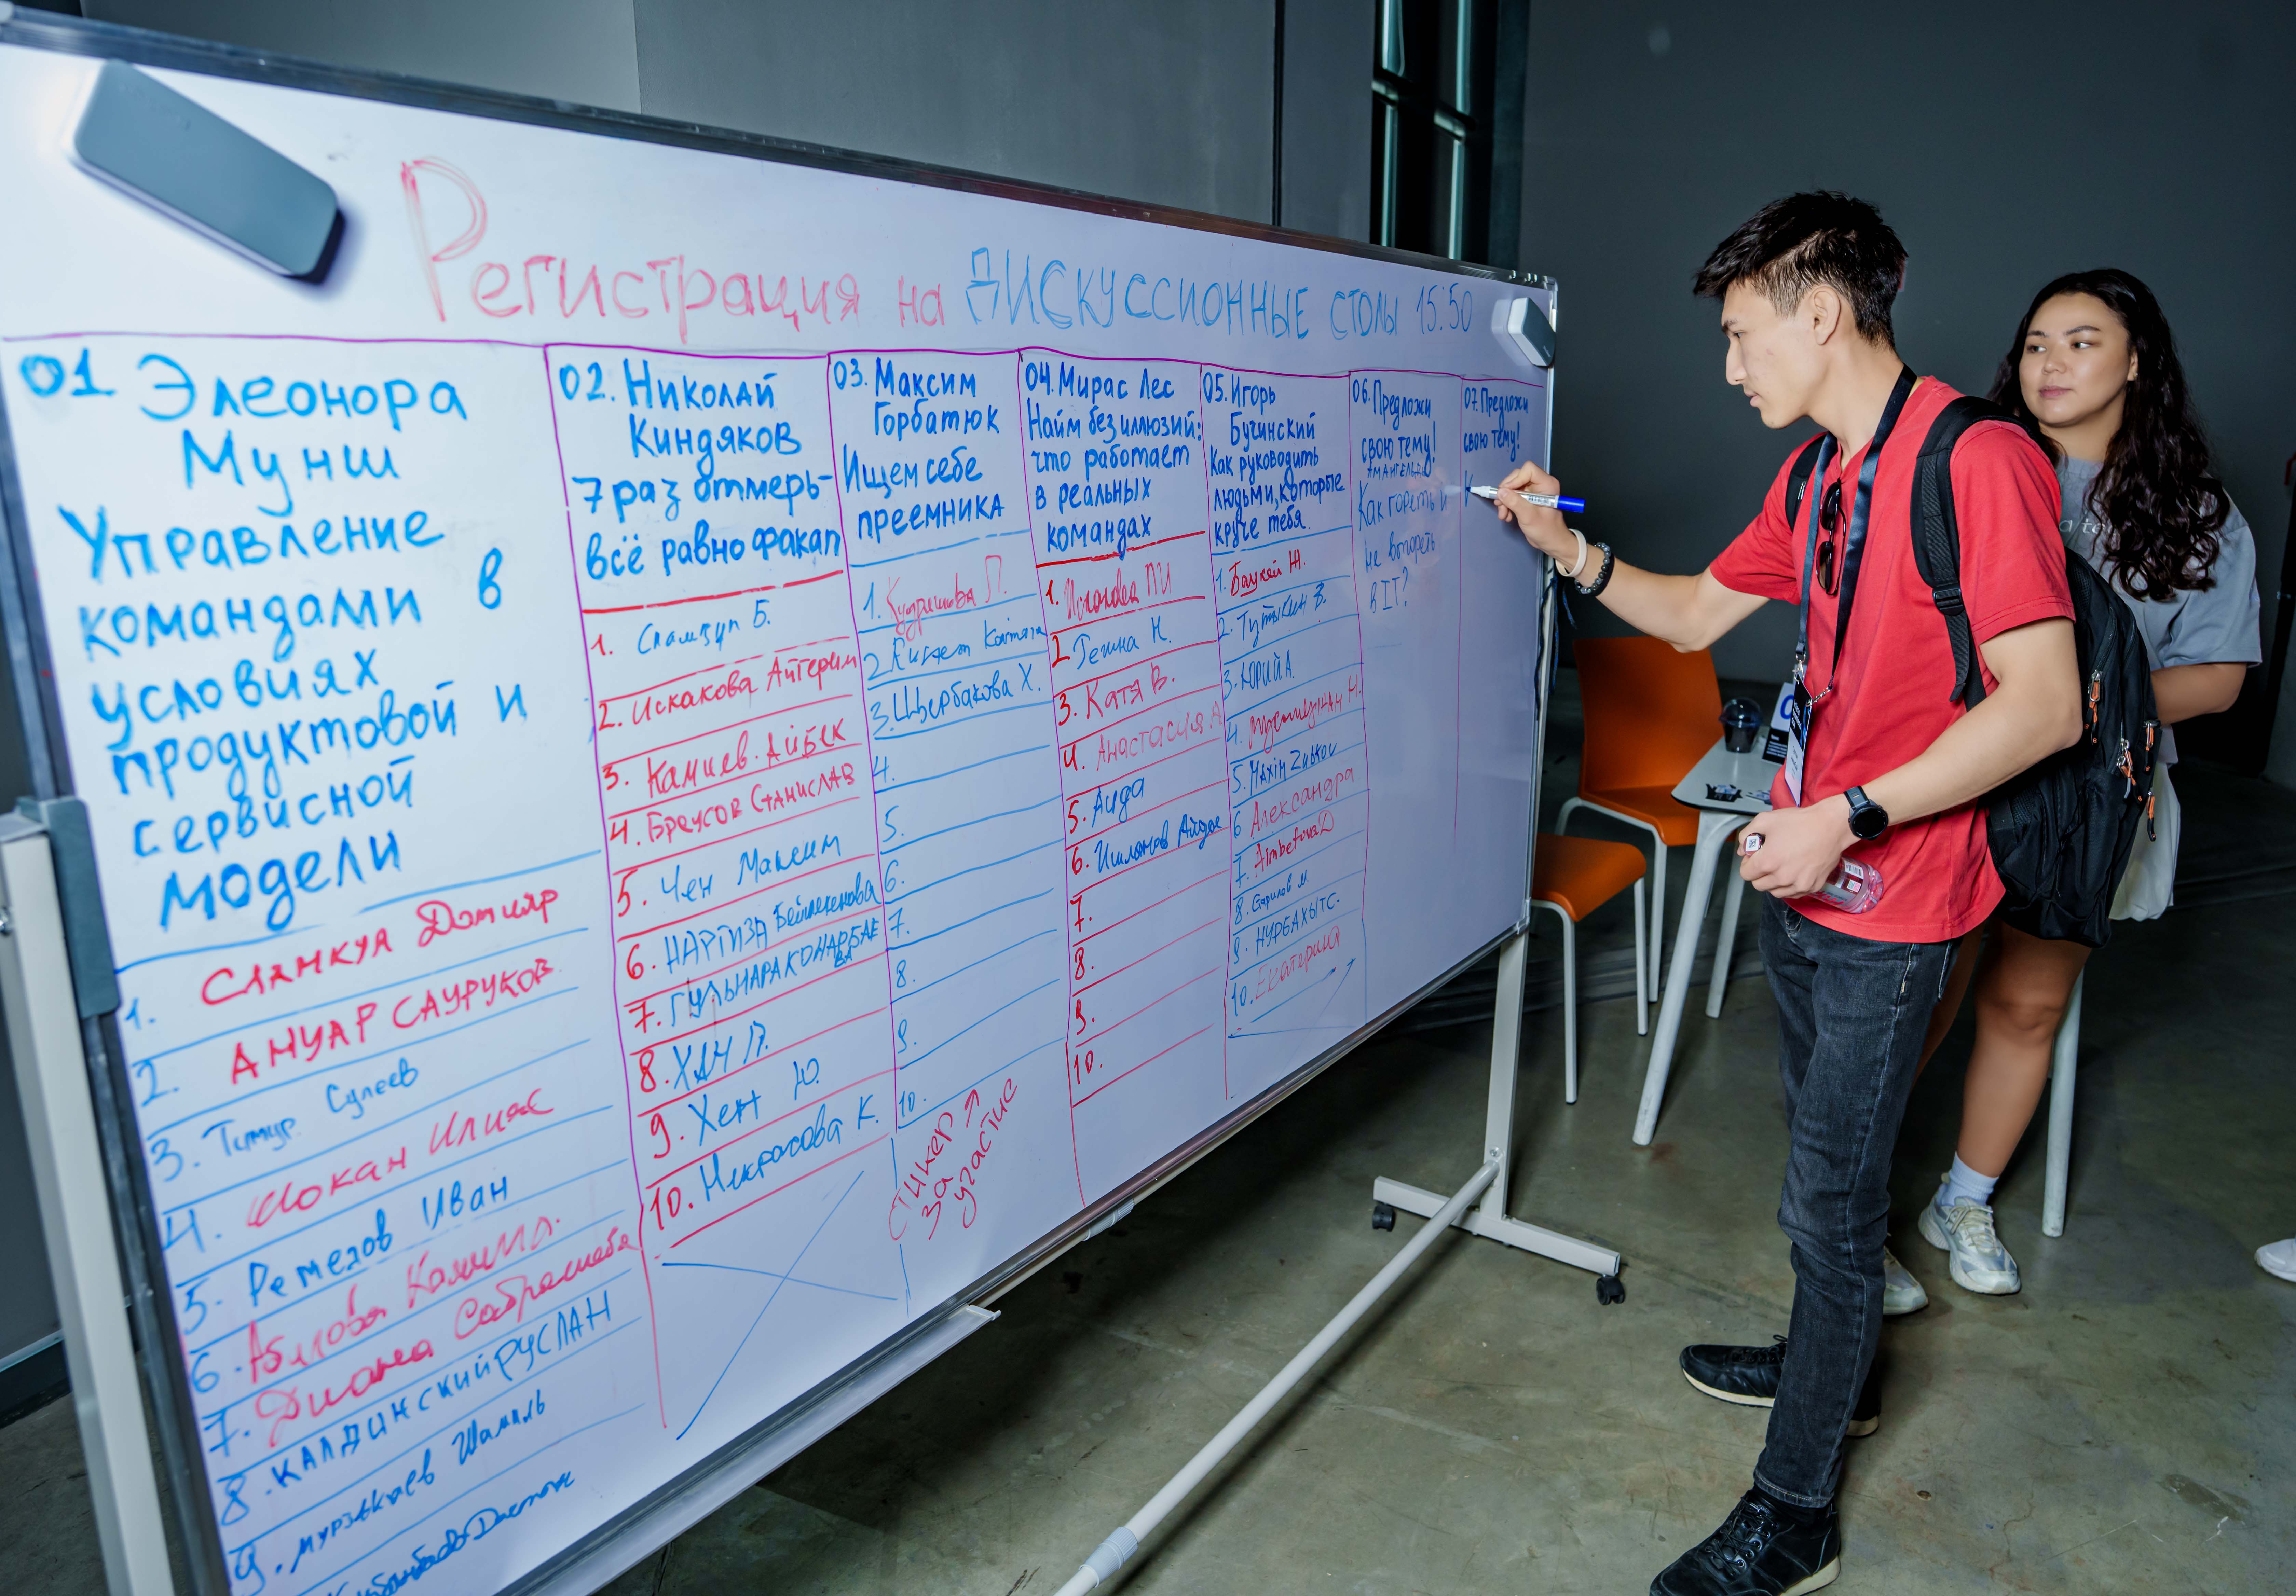 Регистрация на дискуссионные столы 15:50
01 Элеонора
Мунш
Управление
командами в
условиях
продуктовой и
сервисной
модели
1. Сланкул Данияр
2. АНУАР САУРУКОВ
3. Тимур Сулеев
4. Шокан Илияс
5. Ремезов Иван
6. Абилова Камила.
7. Диана
8. КАЛДИНСКИЙ РУСЛАН
9. Шамиль
02. Николай
Киндяков
7 раз отмерь-
всё равно факап
1. Б.
2. Искакова Айгерим
3. Камиев Айбек
4. Бреусов Станислав
5. Чен Максим
6. НАРГИЗА
7. ГУЛЬНАРА КОНАРБАЕ
ВА
8. ХАН
9. Хен Ю.
10. Некрасова К.
03. Максим
Горбатюк
Ищем себе
преемника
1. Кудряшова П.
2.
3. Щербакова Х.
4.
5.
6.
7.
8.
9.
10.
Стикер
за
участие
04. Мирас Лес
Найм без иллюзий:
что работает
в реальных
командах
1.
2. Гегина Н.
3. Катя В.
4. Анастасия А
5. Аида
6.
7.
8.
9.
10.
05. Игорь
Бучинский
Как руководить
людьми, которые
круче тебя
1. Ж.
2. Тутыкин В.
3. ЮРИЙ А.
4. Н.
5. Maxim Zubkov
6 Александра
7. Aimbetova D
8. М.
9. НУРБАХЫТ С.
10. Екатерина
06. Предложи
свою тему!
Как гореть и
не сгореть
в IT?
07. Предложи
свою тему!